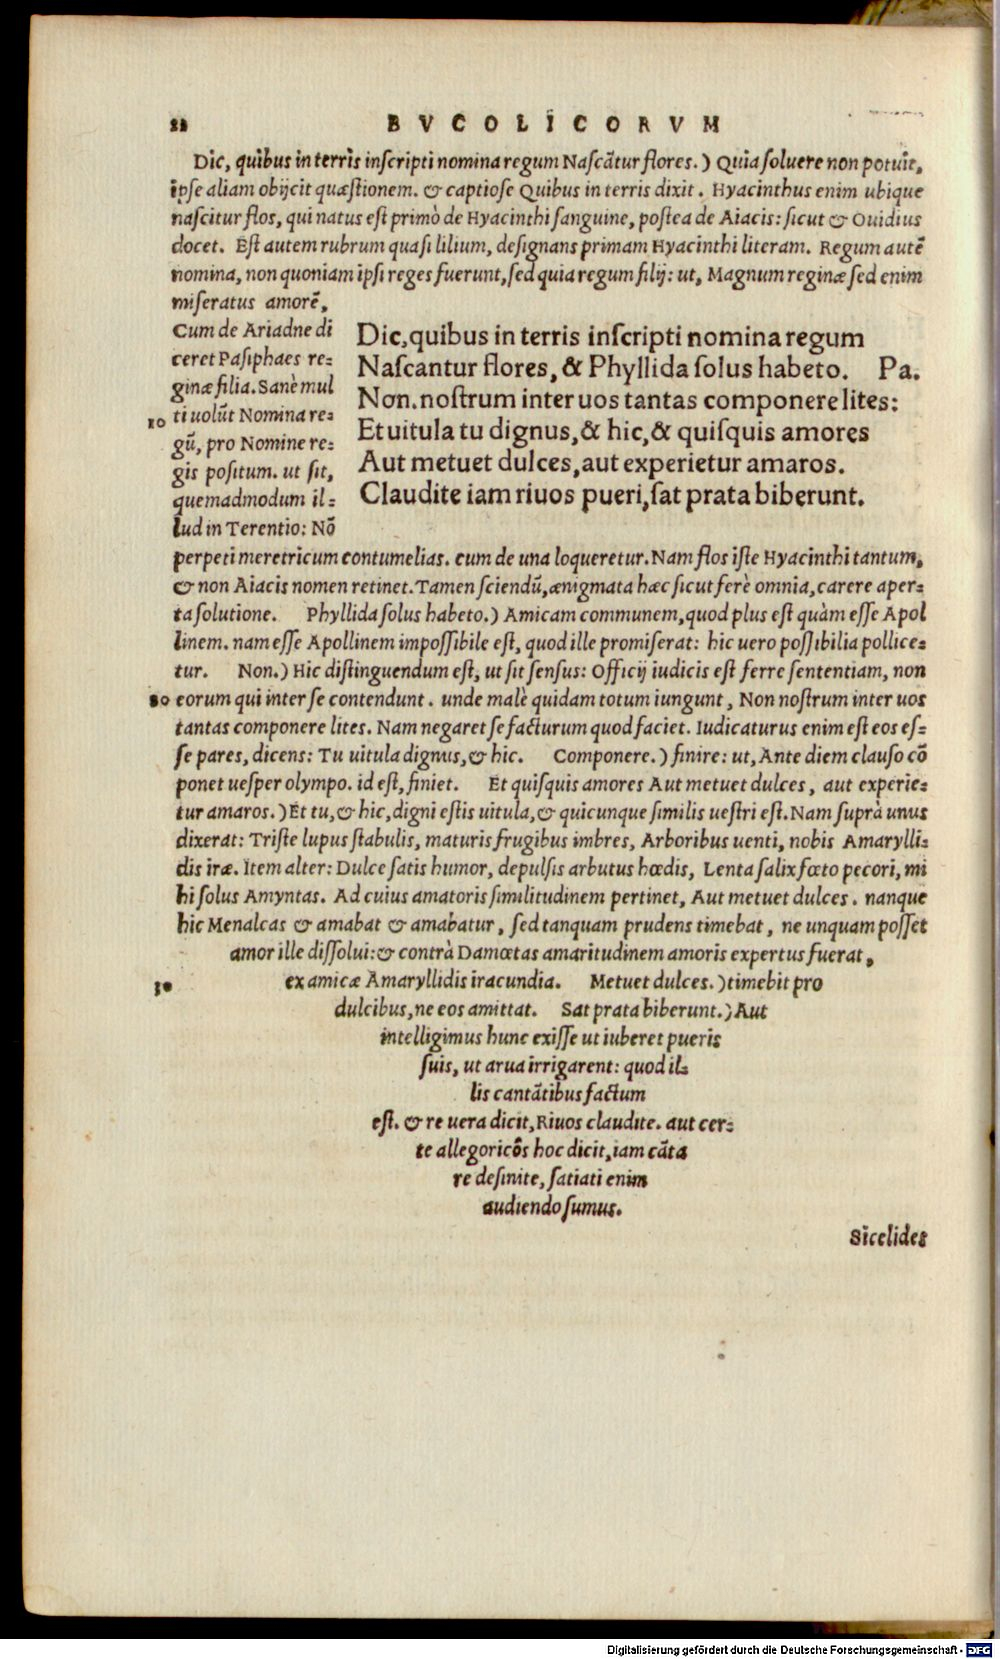 22 BVCOLICORVM
Dic, quibus in terris inscripti nomina regum Nascãtur flores.) Quia soluere non potuit,
ipse aliam obijcit quæstionem. & captiose Quibus in terris dixit. Hyacinthus enim ubique
nascitur flos, qui natus est primò de Hyacinthi sanguine, postea de Aiacis: sicut & Ouidius
docet. Est autem rubrum quasi lilium, designans primam Hyacinthi literam. Regum autẽ
nomina, non quoniam ipsi reges fuerunt, sed quia regum filij: ut, Magnum reginæ sed enim
miseratus amorẽ,
Cum de Ariadne di
ceret Pasiphaes re-
ginæ filia. Sanè mul
10 ti uolũt Nomina re-
gũ, pro Nomine re-
gis positum. ut sit,
quemadmodum il-
lud in Terentio: Nõ
Dic, quibus in terris inscripti nomina regum
Nascantur flores, & Phyllida solus habeto. Pa.
Non. nostrum inter uos tantas componere lites:
Et uitula tu dignus, & hic, & quisquis amores
Aut metuet dulces, aut experietur amaros.
Claudite iam riuos pueri, sat prata biberunt.
perpeti meretricum contumelias. cum de una loqueretur. Nam flos iste Hyacinthi tantum,
& non Aiacis nomen retinet. Tamen sciendũ, ænigmata hæc sicut ferè omnia, carere aper-
ta solutione. Phyllida solus habeto.) Amicam communem, quod plus est quàm esse Apol
linem. nam esse Apollinem impossibile est, quod ille promiserat: hic uero possibilia pollice-
tur. Non.) Hic distinguendum est, ut sit sensus: Officij iudicis est ferre sententiam, non
20 eorum qui inter se contendunt. unde malè quidam totum iungunt, Non nostrum inter uos
tantas componere lites. Nam negaret se facturum quod faciet. Iudicaturus enim est eos es-
se pares, dicens: Tu uitula dignus, & hic. Componere.) finire: ut, Ante diem clauso cõ
ponet uesper olympo. id est, finiet. Et quisquis amores Aut metuet dulces, aut experie-
tur amaros.) Et tu, & hic, digni estis uitula, & quicunque similis uestri est. Nam suprà unus
dixerat: Triste lupus stabulis, maturis frugibus imbres, Arboribus uenti, nobis Amarylli-
dis iræ. Item alter: Dulce satis humor, depulsis arbutus hœdis, Lenta salix fœto pecori, mi
hi solus Amyntas. Ad cuius amatoris similitudinem pertinet, Aut metuet dulces. nanque
hic Menalcas & amabat & amabatur, sed tanquam prudens timebat, ne unquam posset
amor ille dissolui: & contrà Damœtas amaritudinem amoris expertus fuerat,
30 ex amicæ Amaryllidis iracundia. Metuet dulces.) timebit pro
dulcibus, ne eos amittat. Sat prata biberunt.) Aut
intelligimus hunc exisse ut iuberet pueris
suis, ut arua irrigarent: quod il-
lis cantãtibus factum
est. & re uera dicit, Riuos claudite. aut cer-
te allegoricôs hoc dicit, iam cãta
re desinite, satiati enim
audiendo sumus.
Sicelides
Digitalisierung gefördert durch die Deutsche Forschungsgemeinschaft - DFG